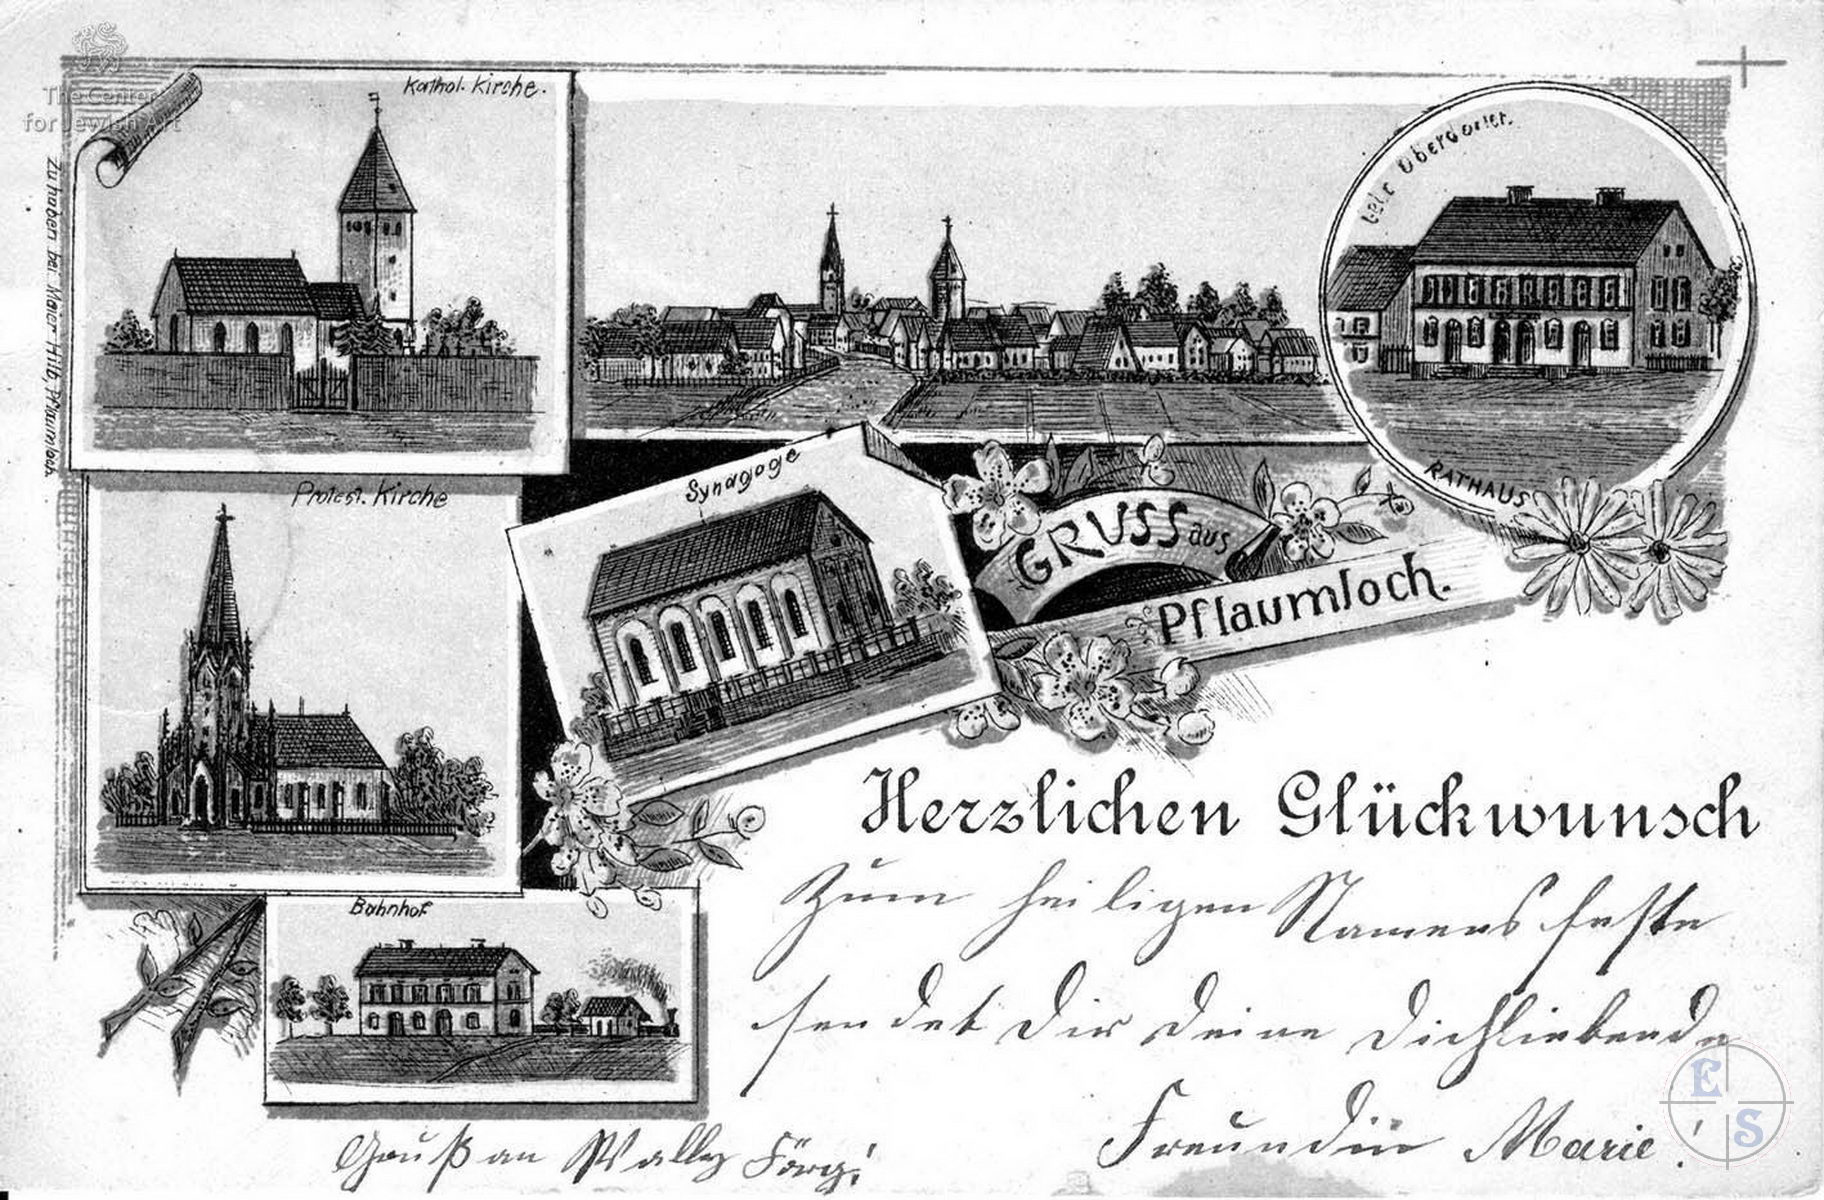 The Center
for Jewish Art
Kathol. Kirche.
Oberdorfer.
RATHAUS
Zu haben bei Maier Hilb, Pflaumloch.
Protest. Kirche
Synagoge
GRUSS aus
Pflaumloch.
Bahnhof
Herzlichen Glückwunsch
Zum heiligen Namensfeste
sendet Dir Deine Dichliebende
Freundin Marie!
Gruß an Wally
E
S